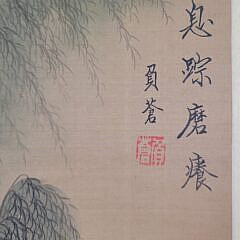 息踪磨癢
負蒼